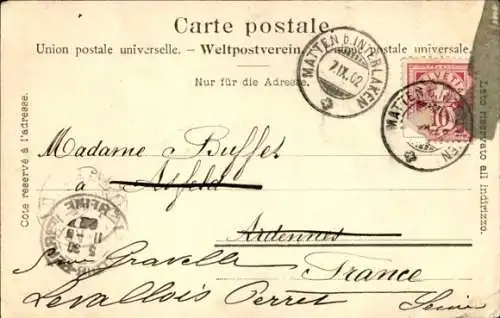 Carte postale.
Union postale universelle. - Weltpostverein. - Unione postale universale.
Nur für die Adresse.
Côté réservé à l'adresse.
Lato riservato all'indirizzo.
MATTEN b. INTERLAKEN
7.IX.02
HELVETIA
10
MATTEN b. INTERLAKEN
Madame Buffet
à Asfeld
Ardennes
Gravelle France
Levallois Perret Seine